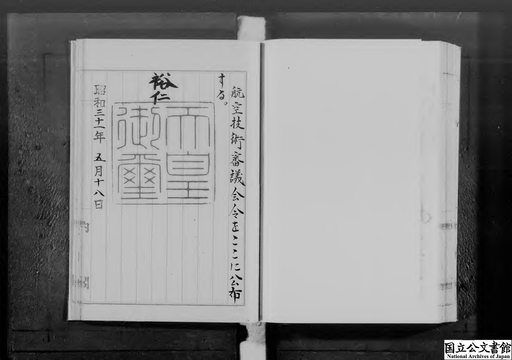 航空技術審議会令をここに公布
する。
裕仁
天皇
御璽
昭和三十一年 五月十八日
国立公文書館
National Archives of Japan